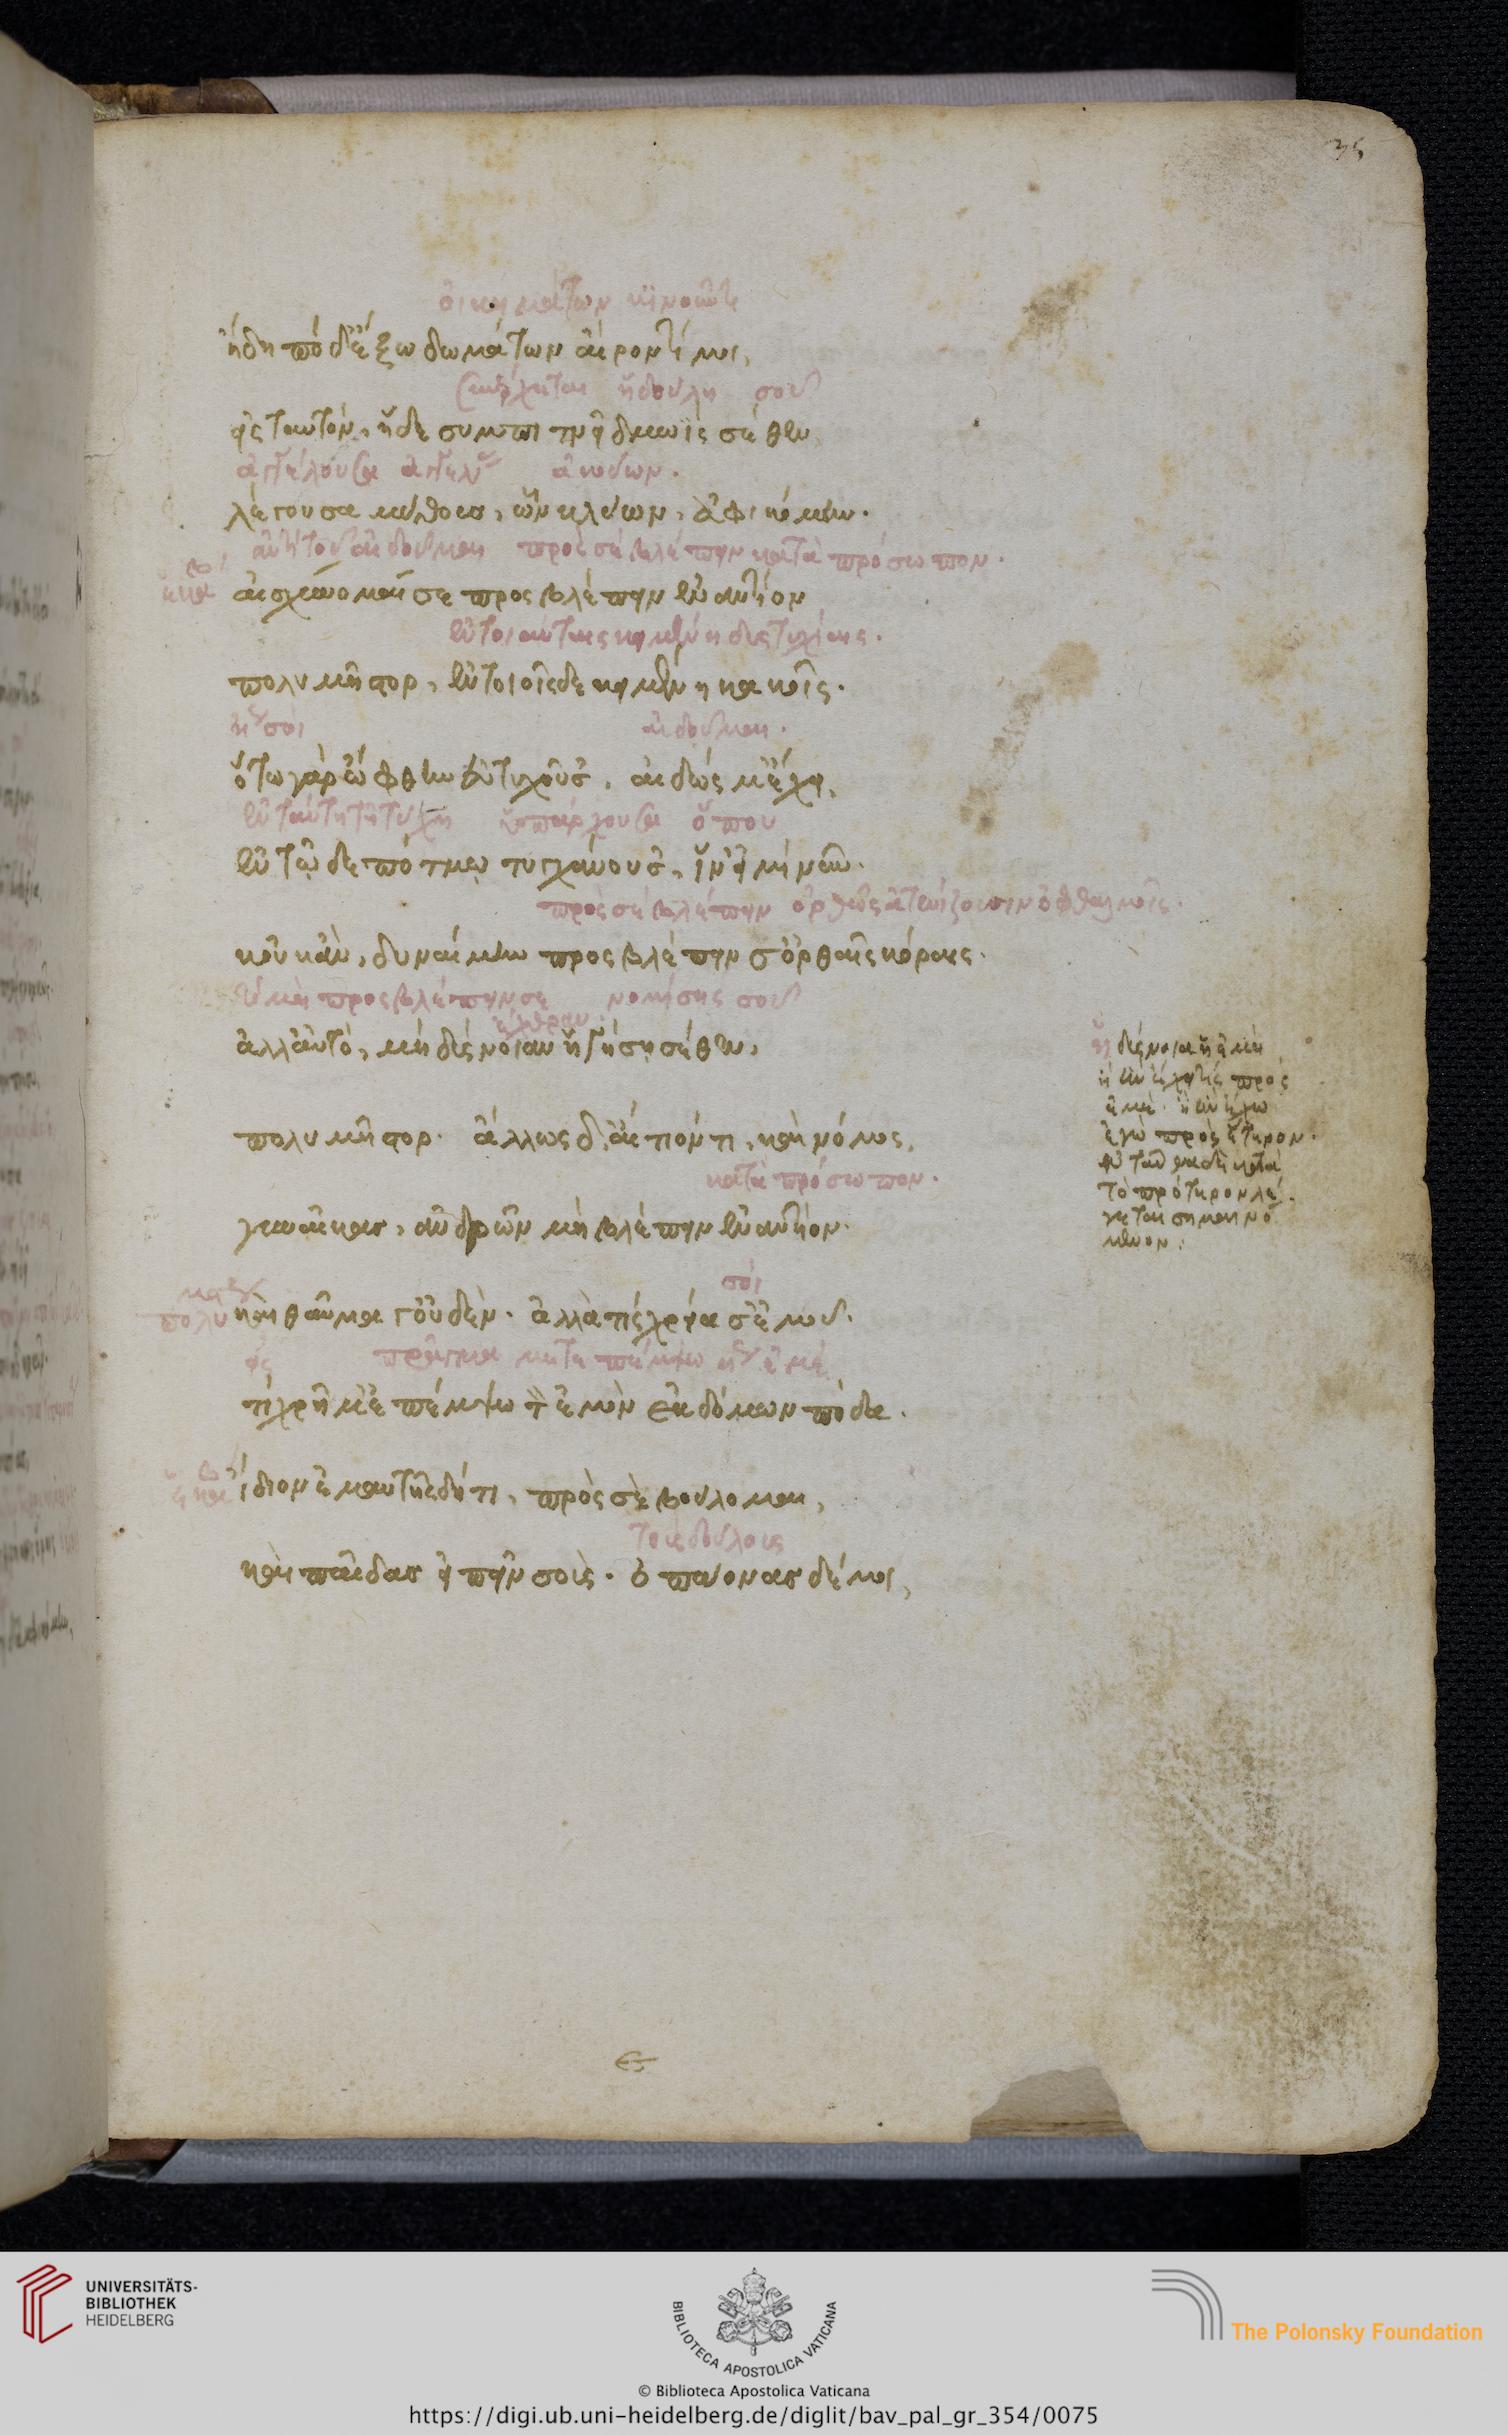 οἰκημάτων κινοῦντι
ἤδη πόδ' ἔξω δωμάτων αἴροντί μοι,
συνέρχεται ἡ δούλη σοῦ
εἰς ταυτὸν, ἥδε συμπιτνεῖ δμωῒς σέθεν
ἀγγέλουσα ἀκούων.
λέγουσα μύθους, ὧν κλύων, ἀφικόμην.
αἰδοῦμαι προσβλέπειν κατὰ πρόσωπον.
ἑκά αἰσχύνομαί σε προσβλέπειν ἐναντίον
ἐν τοιαύταις κειμένη δυστυχίαις.
πολυμῆστορ, ἐν τοιοῖσδε κειμένη κακοῖς.
αἰδοῦμαι.
ὅτω γὰρ ὤφθην εὐτυχοῦσ', αἰδώς μ' ἔχει,
ἐν ταύτη τῆ τύχη ὑπάρχουσα ὅπου
ἐν τῷδε πότμῳ τυγχάνουσ', ἵν' εἰμὶ νῦν.
πρὸς σὲ βλέπειν ὀρθῶς ἀτενίζουσιν ὀφθαλμοῖς.
κοὐκ ἂν, δυναίμην προσβλέπειν σ' ὀρθαῖς κόραις.
τὸ μὴ προσβλέπειν σε νομίσης σοῦ
ἔχθραν
ἀλλ' αὐτὸ, μὴ δύσνοιαν ἡγήση σέθεν,
πολυμῆστορ. ἄλλως δ' αἴτιόν τι, καὶ νόμος,
κατὰ πρόσωπον.
γυναῖκας, ἀνδρῶν μὴ βλέπειν ἐναντίον.
σοὶ
πολυ καὶ θαῦμα γ' οὐδὲν. ἀλλὰ τίς χρεία σ' ἐμοῦ.
εἰς πρᾶγμα ἐμὲ
τί χρῆμ' ἐπέμψω τὸν ἐμὸν ἐκ δόμων πόδα.
ἑκά ἴδιον ἐμαυτῆς δή τι, πρὸς σὲ βούλομαι,
τοὺς δούλους
καὶ παῖδας εἰπεῖν σοὺς. ὀπάονας δέ μοι,
ἡ δύσνοια ἢ ἐμὴ
ἣν ἔχεις πρὸς
ἐμὲ. ἢ ἣν ἔχω
ἐγὼ πρὸς ἕτερον.
ἐνταῦθα δὲ κατὰ
τὸ πρότερον λέ-
γεται σημαινό
μενον.
UNIVERSITÄTS-
BIBLIOTHEK
HEIDELBERG
BIBLIOTECA APOSTOLICA VATICANA
The Polonsky Foundation
© Biblioteca Apostolica Vaticana
https://digi.ub.uni-heidelberg.de/diglit/bav_pal_gr_354/0075